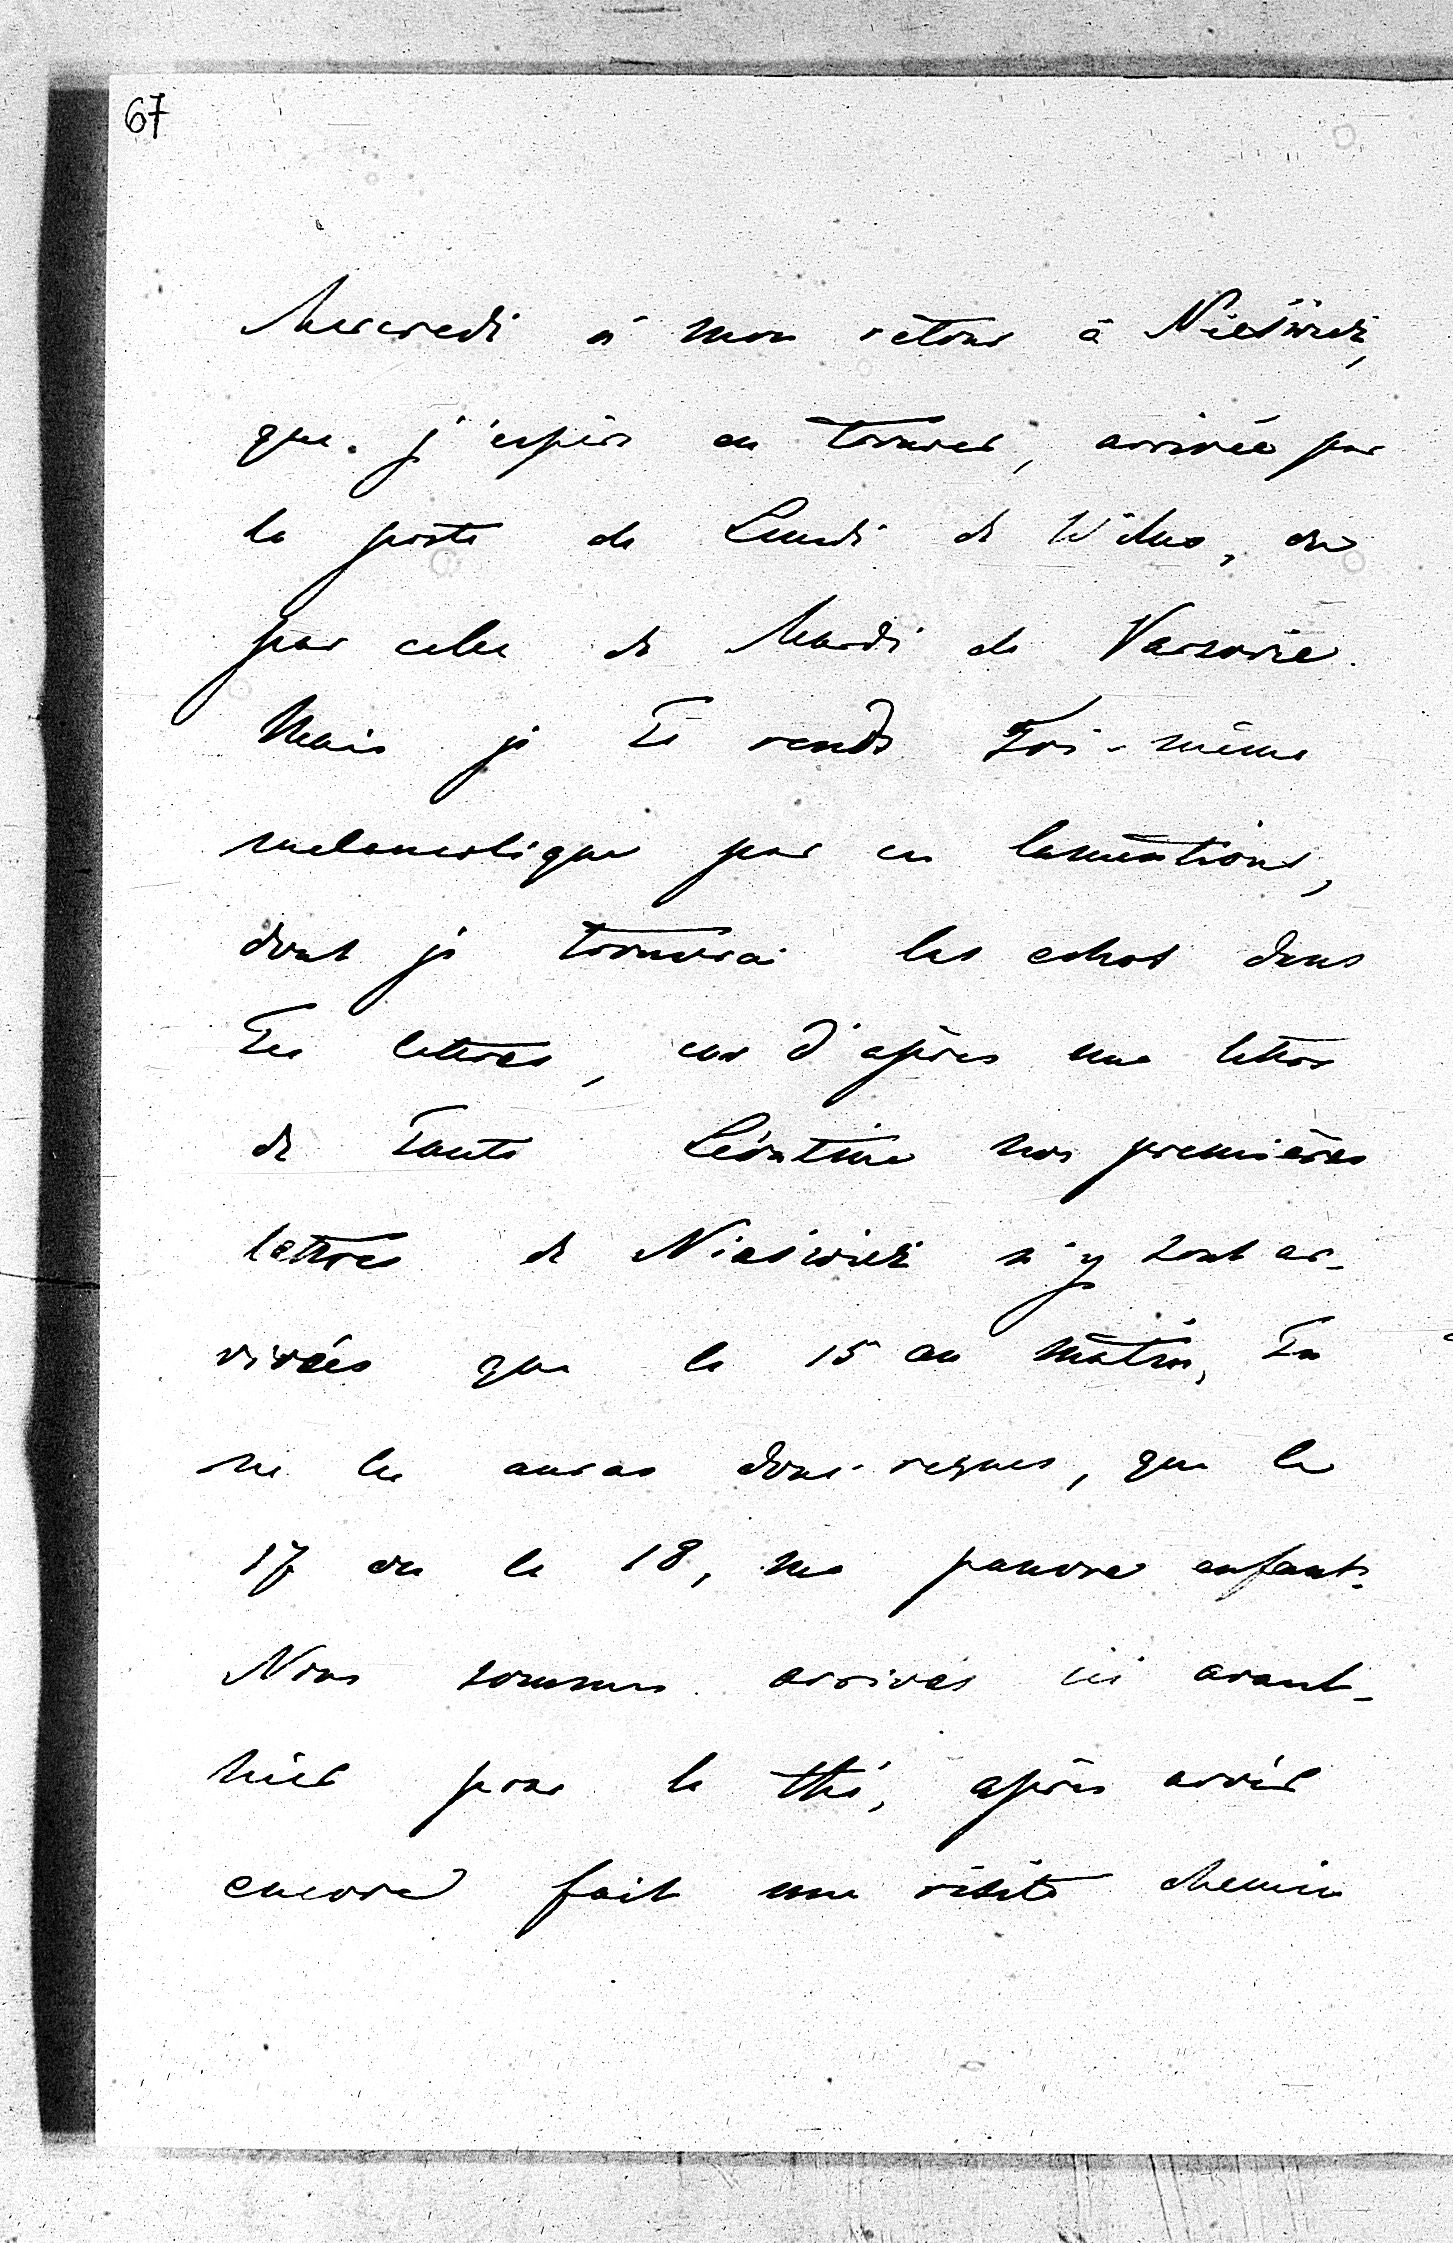 67
Mercredi à mon retour à Nieśwież,
que j'espère en trouver, arrivée par
la poste de Lundi de Wilno, ou
par celle de Mardi de Varsovie.
Mais je Te rends Toi-même
melancolique par ces lamentions,
dont je trouverai les echos dans
Tes lettres, car d'après une lettre
de Tante Léontine nos premières
lettres de Nieśwież n'y sont ar-
rivées que le 15 au matin, Tu
ne les auras donc reçues, que le
17 ou le 18, ma pauvre enfant.
Nous sommes arrivés ici avant-
hier pour le thé, après avoir
encore fait une visite chemin